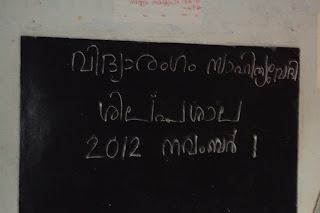 വിദ്യാരംഗം സാഹിത്യവേദി
ശില്പശാല
2012 നവംബർ 1